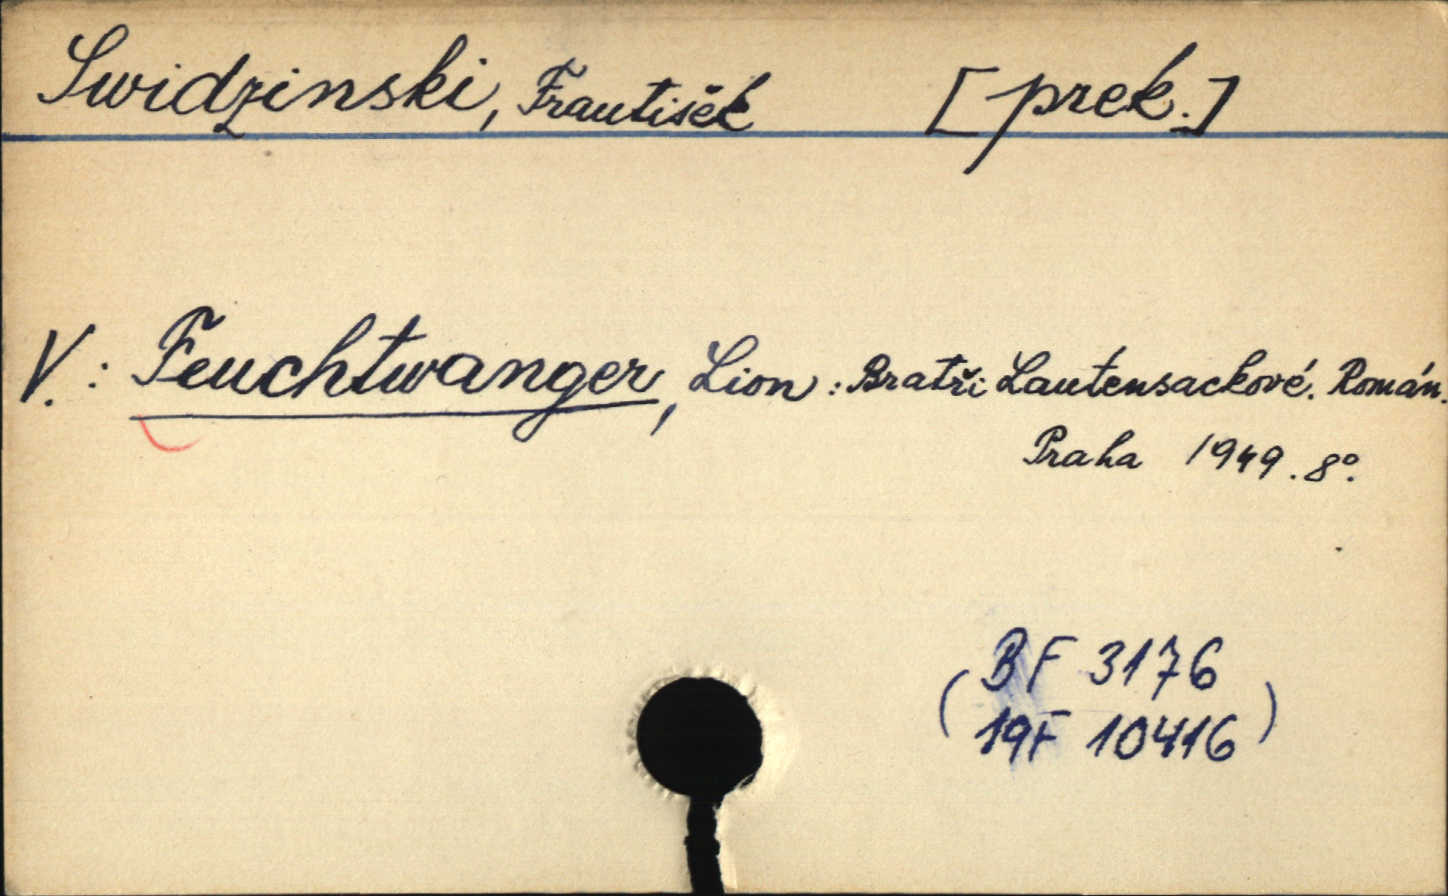 Swidzinski, František [prek.]
V.: Feuchtwanger, Lion: Bratři Lautensackové. Román.
Praha 1949. 8°.
(BF 3176
19F 10416)